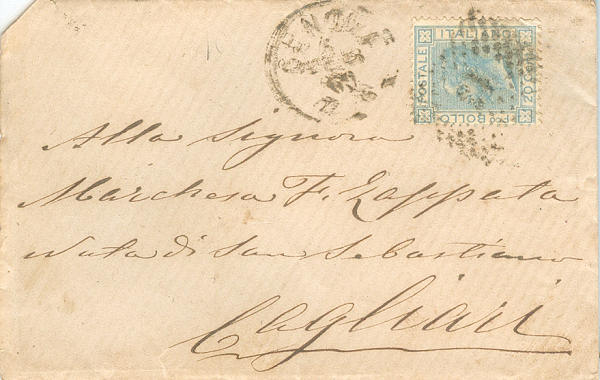 GENOVA
POSTALE ITALIANO
20 CEN
BOLLO
Alla Signora
Marchesa F. Zappata
Nata di San Sebastiano
Cagliari